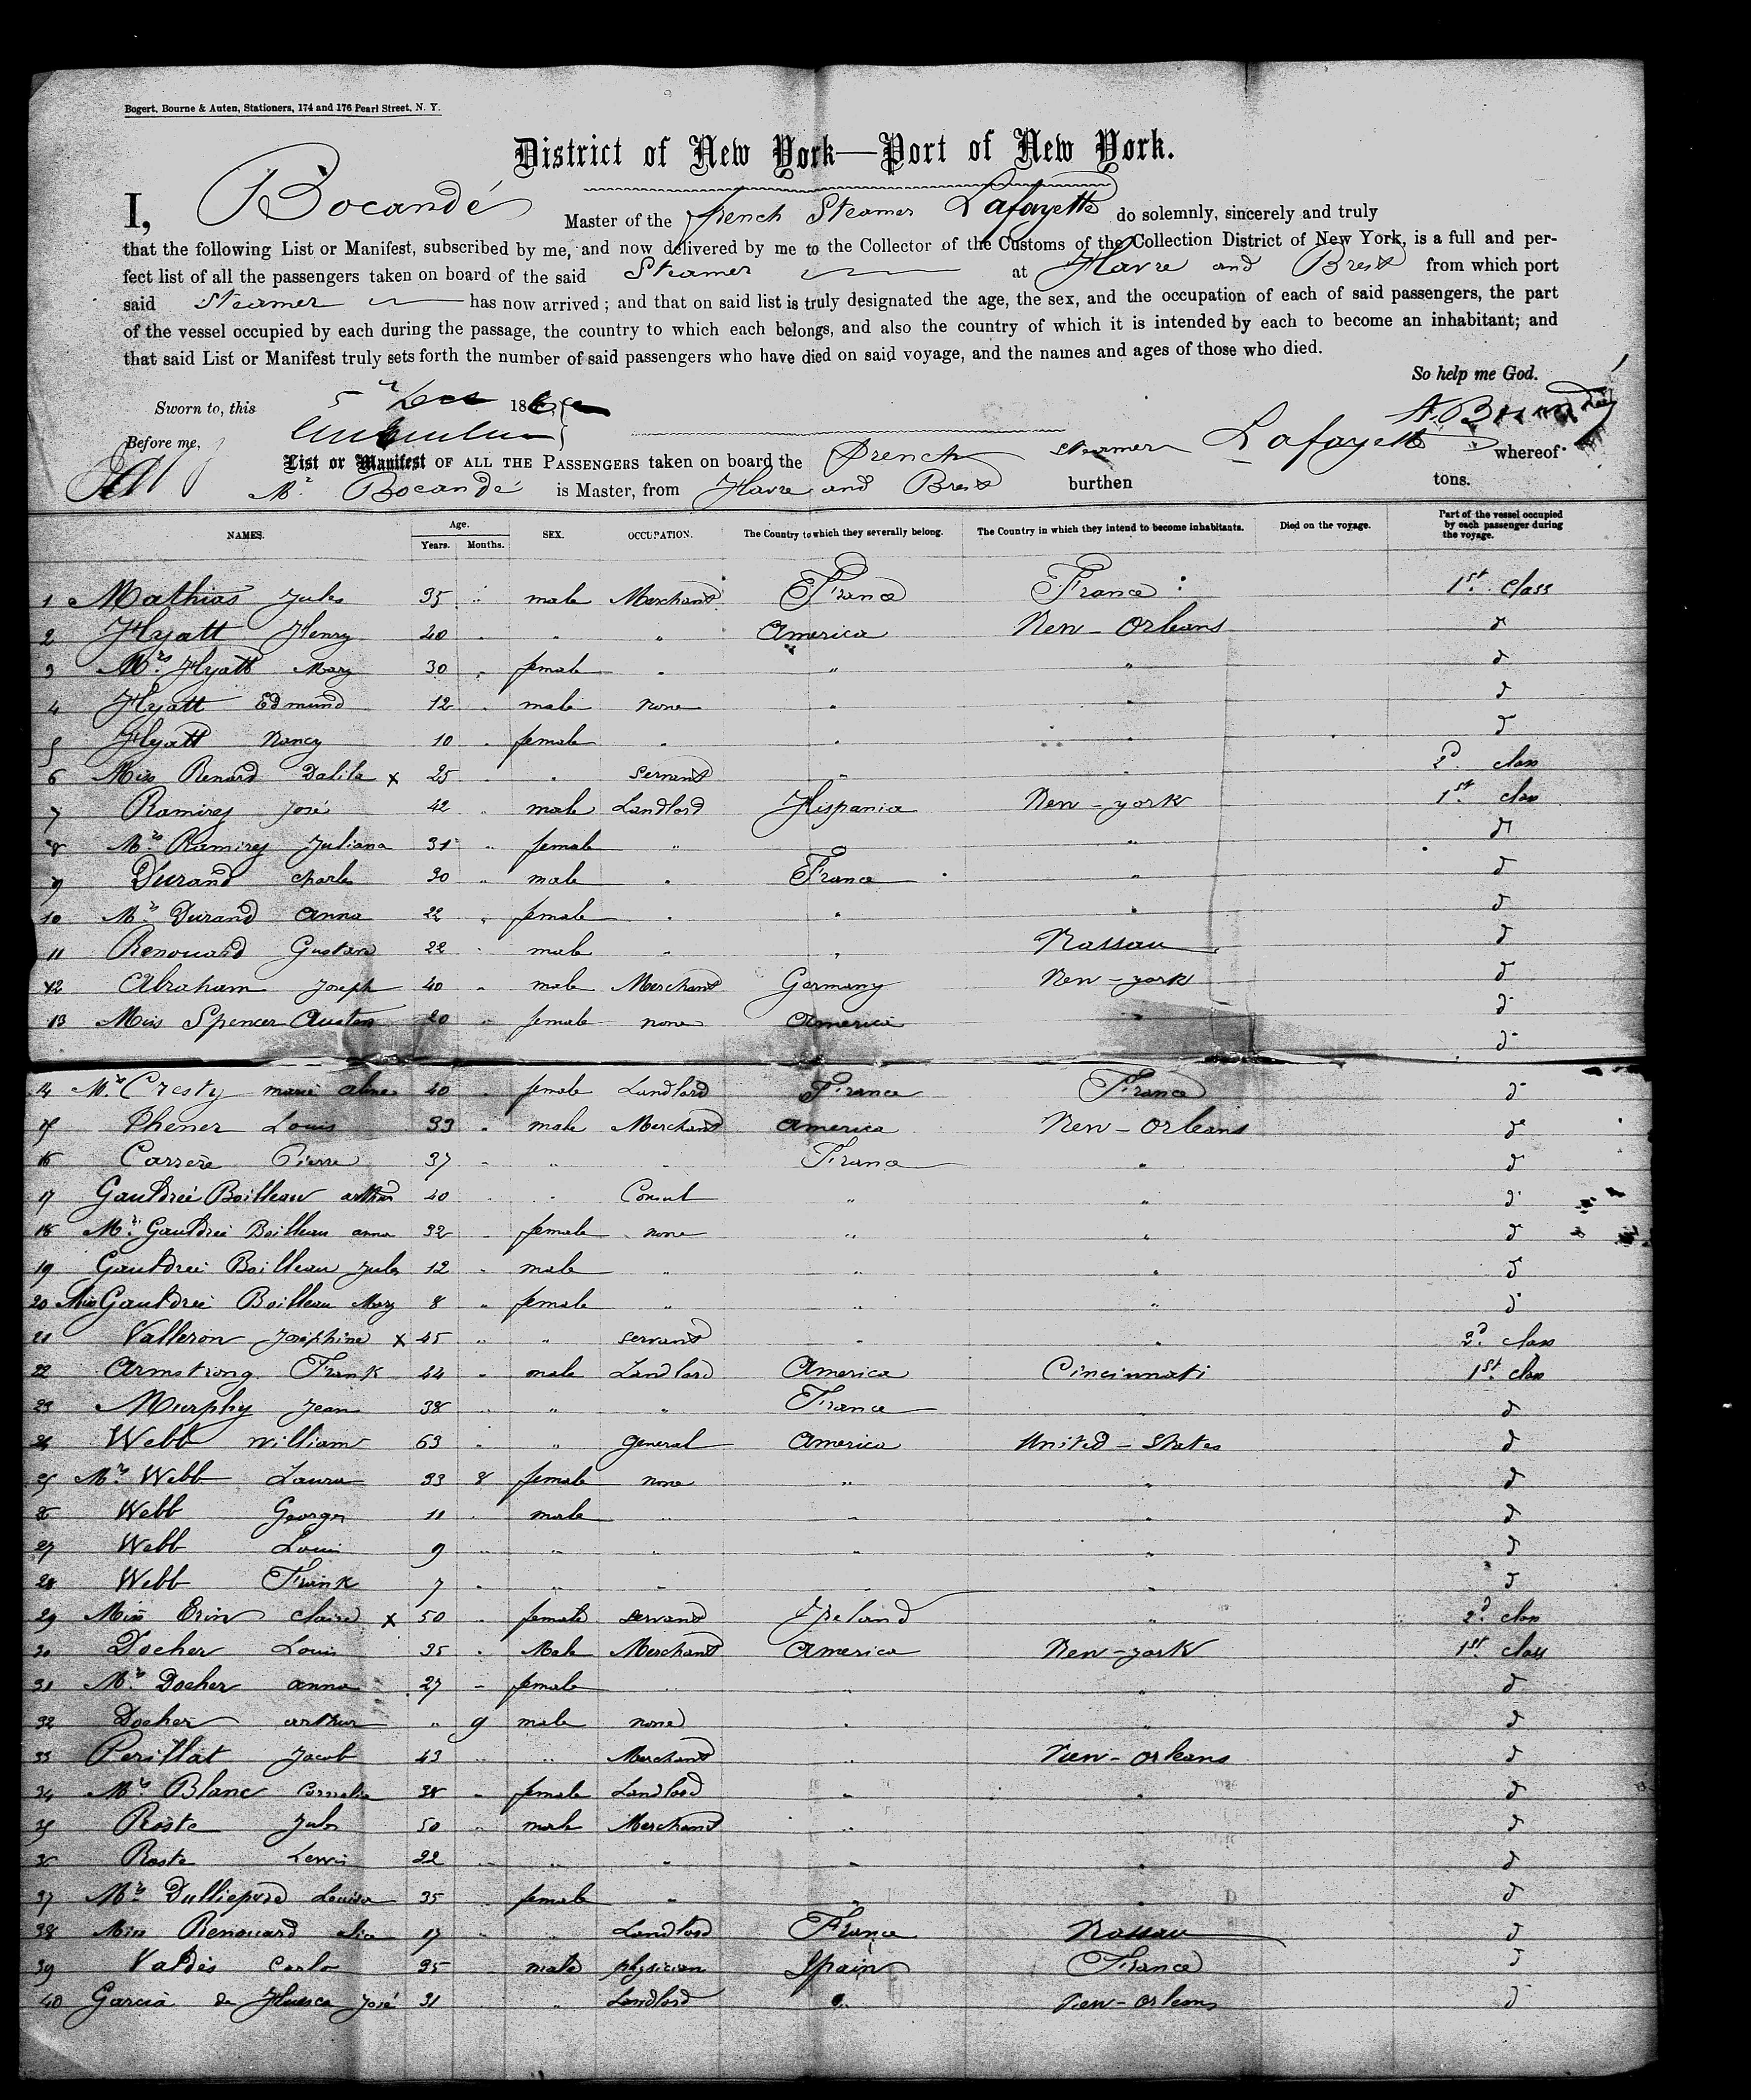 Bogert, Bourne & Auten, Stationers, 174 and 176 Pearl Street, N. Y.
District of New York—Port of New York.
I, Bocandé Master of the french Steamer Lafayette do solemnly, sincerely and truly
that the following List or Manifest, subscribed by me, and now delivered by me to the Collector of the Customs of the Collection District of New York, is a full and per-
fect list of all the passengers taken on board of the said Steamer at Havre and Brest from which port
said Steamer has now arrived; and that on said list is truly designated the age, the sex, and the occupation of each of said passengers, the part
of the vessel occupied by each during the passage, the country to which each belongs, and also the country of which it is intended by each to become an inhabitant; and
that said List or Manifest truly sets forth the number of said passengers who have died on said voyage, and the names and ages of those who died.
So help me God.
Sworn to, this 5 Dec 186
Before me,
List or Manifest OF ALL THE PASSENGERS taken on board the French steamer Lafayette whereof
Mr Bocandé is Master, from Havre and Brest burthen tons.
NAMES. Age. Years. Months. SEX. OCCUPATION. The Country to which they severally belong. The Country in which they intend to become inhabitants. Died on the voyage. Part of the vessel occupied by each passenger during the voyage.
1 Mathias Jules 35 " male Merchant France France 1st class
2 Hyatt Henry 40 " " " America New-Orleans d
3 Mrs Hyatt Mary 30 " female " " " d
4 Hyatt Edmund 12 " male none " " d
5 Hyatt Nancy 10 " female " " " d
6 Miss Renard Dalila x 25 " " servant " " 2d class
7 Ramirez José 42 " male Landlord Hispania New-york 1st class
8 Mrs Ramirez Juliana 31 " female " " " d
9 Durand Charles 30 " male " France " d
10 Mrs Durand Anna 22 " female " " " d
11 Renouard Gustave 22 " male " " Nassau d
12 Abraham Joseph 40 " male Merchant Germany New-york d
13 Miss Spencer Austen 20 " female none America " d
d
14 Mrs Cresty marie aline 40 " female Landlord France France d
15 Phener Louis 33 " male Merchant America New-Orleans d
16 Carrere Pierre 37 " " " France " d
17 Gauldreé Boilleau arthur 40 " " Consul " " d
18 Mrs Gauldreé Boilleau anna 32 " female none " " d
19 Gauldreé Boilleau Jules 12 " male " " " d
20 Miss Gauldreé Boilleau Mary 8 " female " " " d
21 Valleron Josephine x 45 " " servant " " 2d class
22 Armstrong Frank 44 " male Landlord America Cincinnati 1st class
23 Murphy Jean 38 " " " France " d
24 Webb William 63 " " general America United-States d
25 Mrs Webb Laura 33 8 female none " " d
26 Webb Georges 11 " male " " " d
27 Webb Louis 9 " " " " " d
28 Webb Frank 7 " " " " " d
29 Miss Erin Claire x 50 " female servant Ireland " 2d class
30 Docher Louis 35 " Male Merchant America New-york 1st class
31 Mrs Docher anna 27 " female " " " d
32 Docher arthur " 9 male none " " d
33 Perillat Jacob 43 " " Merchant " New-orleans d
34 Mrs Blanc Cornelia 38 " female Landlord " " d
35 Roste Jules 50 " male Merchant " " d
36 Roste Lewis 22 " " " " " d
37 Mrs Louisa 35 " female " " " d
38 Miss Renouard alice 17 " " Landlord France Nassau d
39 Valdès Carlo 35 " male physician Spain France d
40 Garcia de Huesca José 31 " Landlord " New-orleans d